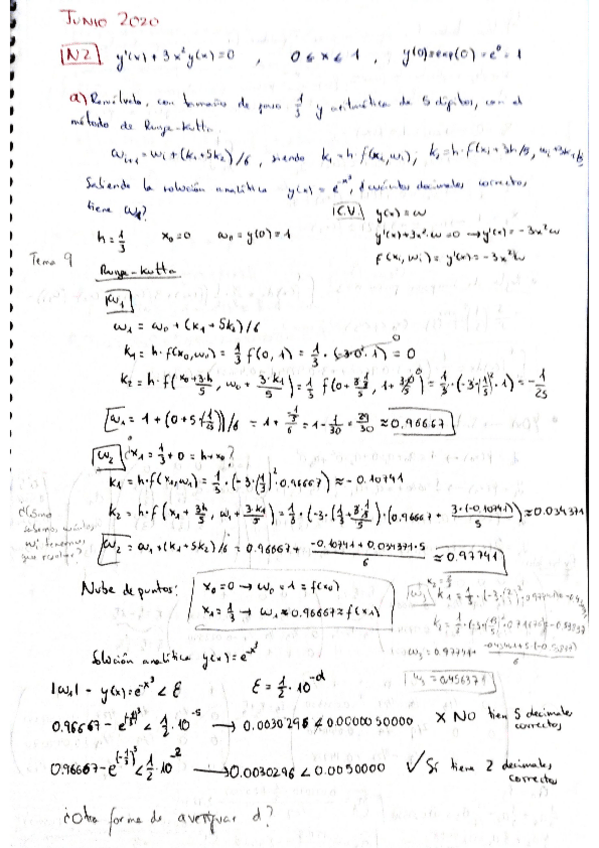 JUNIO 2020
N2 y'(x) + 3x²y(x) = 0 , 0 ≤ x ≤ 1 , y(0) = exp(0) = e⁰ = 1
a) Resuélvelo, con tamaño de paso 1/3 y aritmética de 5 dígitos, con el
método de Runge-Kutta.
ωi+1 = ωi + (k1 + 5k2)/6, siendo k1 = h·f(xi, ωi); k2 = h·f(xi + 3h/5, ωi + 3k1/5)
Sabiendo la solución analítica y(x) = e^-x³, ¿cuántos decimales correctos
tiene ω1?
C.V. y(x) = ω
h = 1/3 x0 = 0 ω0 = y(0) = 1
y'(x) + 3x²·ω = 0 → y'(x) = -3x²ω
f(xi, ωi) = y'(x) = -3x²ω
Tema 9
Runge-Kutta
ω1
ω1 = ω0 + (k1 + 5k2)/6
k1 = h·f(x0, ω0) = 1/3 f(0, 1) = 1/3 · (-3·0²·1) = 0
k2 = h·f(x0 + 3h/5, ω0 + 3·k1/5) = 1/3 f(0 + 3·1/3/5, 1 + 3·0/5) = 1/3 · (-3·(1/5)²·1) = -1/25
ω1 = 1 + (0 + 5·(-1/25))/6 = 1 + -1/5/6 = 1 - 1/30 = 29/30 ≈ 0.96667
ω2 ¿x1 = 1/3 + 0 = h + x0?
k1 = h·f(x1, ω1) = 1/3 · (-3·(1/3)²·0.96667) ≈ -0.10741
k2 = h·f(x1 + 3h/5, ω1 + 3k1/5) = 1/3 · (-3·(1/3 + 3·1/3/5)²·(0.96667 + 3·(-0.10741)/5) ≈ 0.034371
¿Cómo
sabemos, cuántos
ωi tenemos
que resolver?
ω2 = ω1 + (k1 + 5k2)/6 = 0.96667 + -0.10741 + 0.034371·5/6 ≈ 0.97741
Nube de puntos:
x0 = 0 → ω0 = 1 = f(x0)
x1 = 1/3 → ω1 ≈ 0.96667 ≈ f(x1)
Solución analítica y(x) = e^-x³
|ω1| - y(x) = e^-x³ < ε ε = 1/2 · 10^-d
0.96667 - e^(-1/3)³ < 1/2 · 10^-5 → 0.0030296 < 0.0000050000 X NO tien 5 decimales
correctos
0.96667 - e^(-1/3)³ < 1/2 · 10^-2 → 0.0030296 < 0.0050000 ✓ Sí tiene 2 decimales
correctos
¿Otra forma de averiguar d?